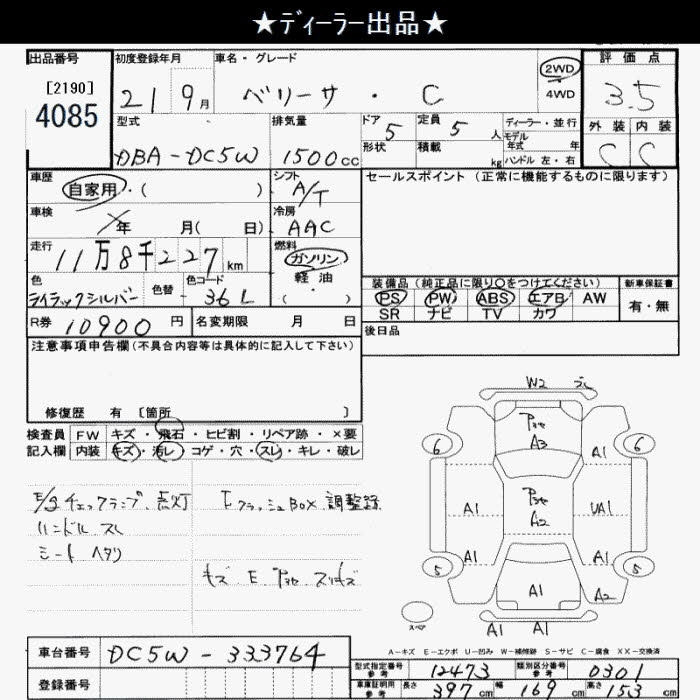 ★ディーラー出品★
出品番号 初度登録年月 車名・グレード 評価点
[2190]
4085
21 9月 ベリーサ・C 2WD 4WD 3.5
型式 排気量 ドア 5 定員 5人 ディーラー・並行 外装 内装
DBA-DC5W 1500cc 形状 積載 kg モデル年式 年 ハンドル 左・右 C C
車歴 自家用・( ) シフト A/T セールスポイント (正常に機能するものに限ります)
車検 年 月( 日) 冷房 AAC
走行 11万8千227km 燃料 ガソリン・軽油・( )
色 ライラックシルバー 色替 色コード 36L
装備品 (純正品に限り○をつけてください) 新車保証書
PS PW ABS エアB AW 有・無
SR ナビ TV カワ
R券 10900円 名変期限 月 日 後日品
注意事項申告欄(不具合内容等は具体的に記入して下さい)
修復歴 有 〔箇所 〕
検査員 FW キズ・飛石・ヒビ割・リペア跡・×要
記入欄 内装 キズ・汚レ・コゲ・穴・スレ・キレ・破レ
E/gチェックランプ点灯
ハンドル スレ
シート ヘタリ
BOX
キズ E スリキズ
W2
A3
6 A1 6
A1 A2 UA1
A1 A1
5 A1 5
A2
A1 A1
スペア
A-キズ E-エクボ U-凹み W-補修跡 S-サビ C-腐食 XX-交換済
車台番号 DC5W-333764
登録番号
型式指定番号 参考 12473 類別区分番号 参考 0301
車庫証明用 参考 長さ 397cm 幅 169cm 高さ 153cm